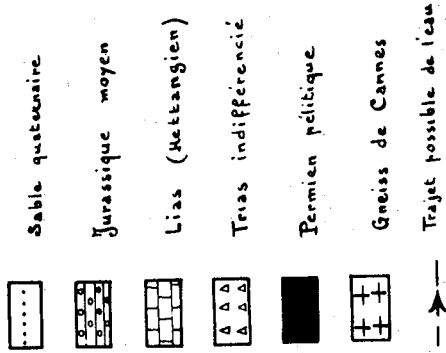 Sable quaternaire
Jurassique moyen
Lias (Hettangien)
Trias indifférencié
Permien pélitique
Gneiss de Cannes
Trajet possible de l'eau